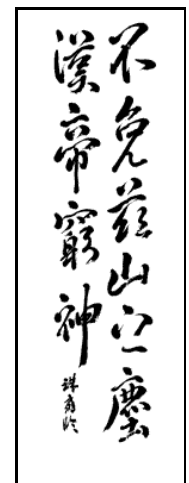 不免茲山塵
漢帝窮神